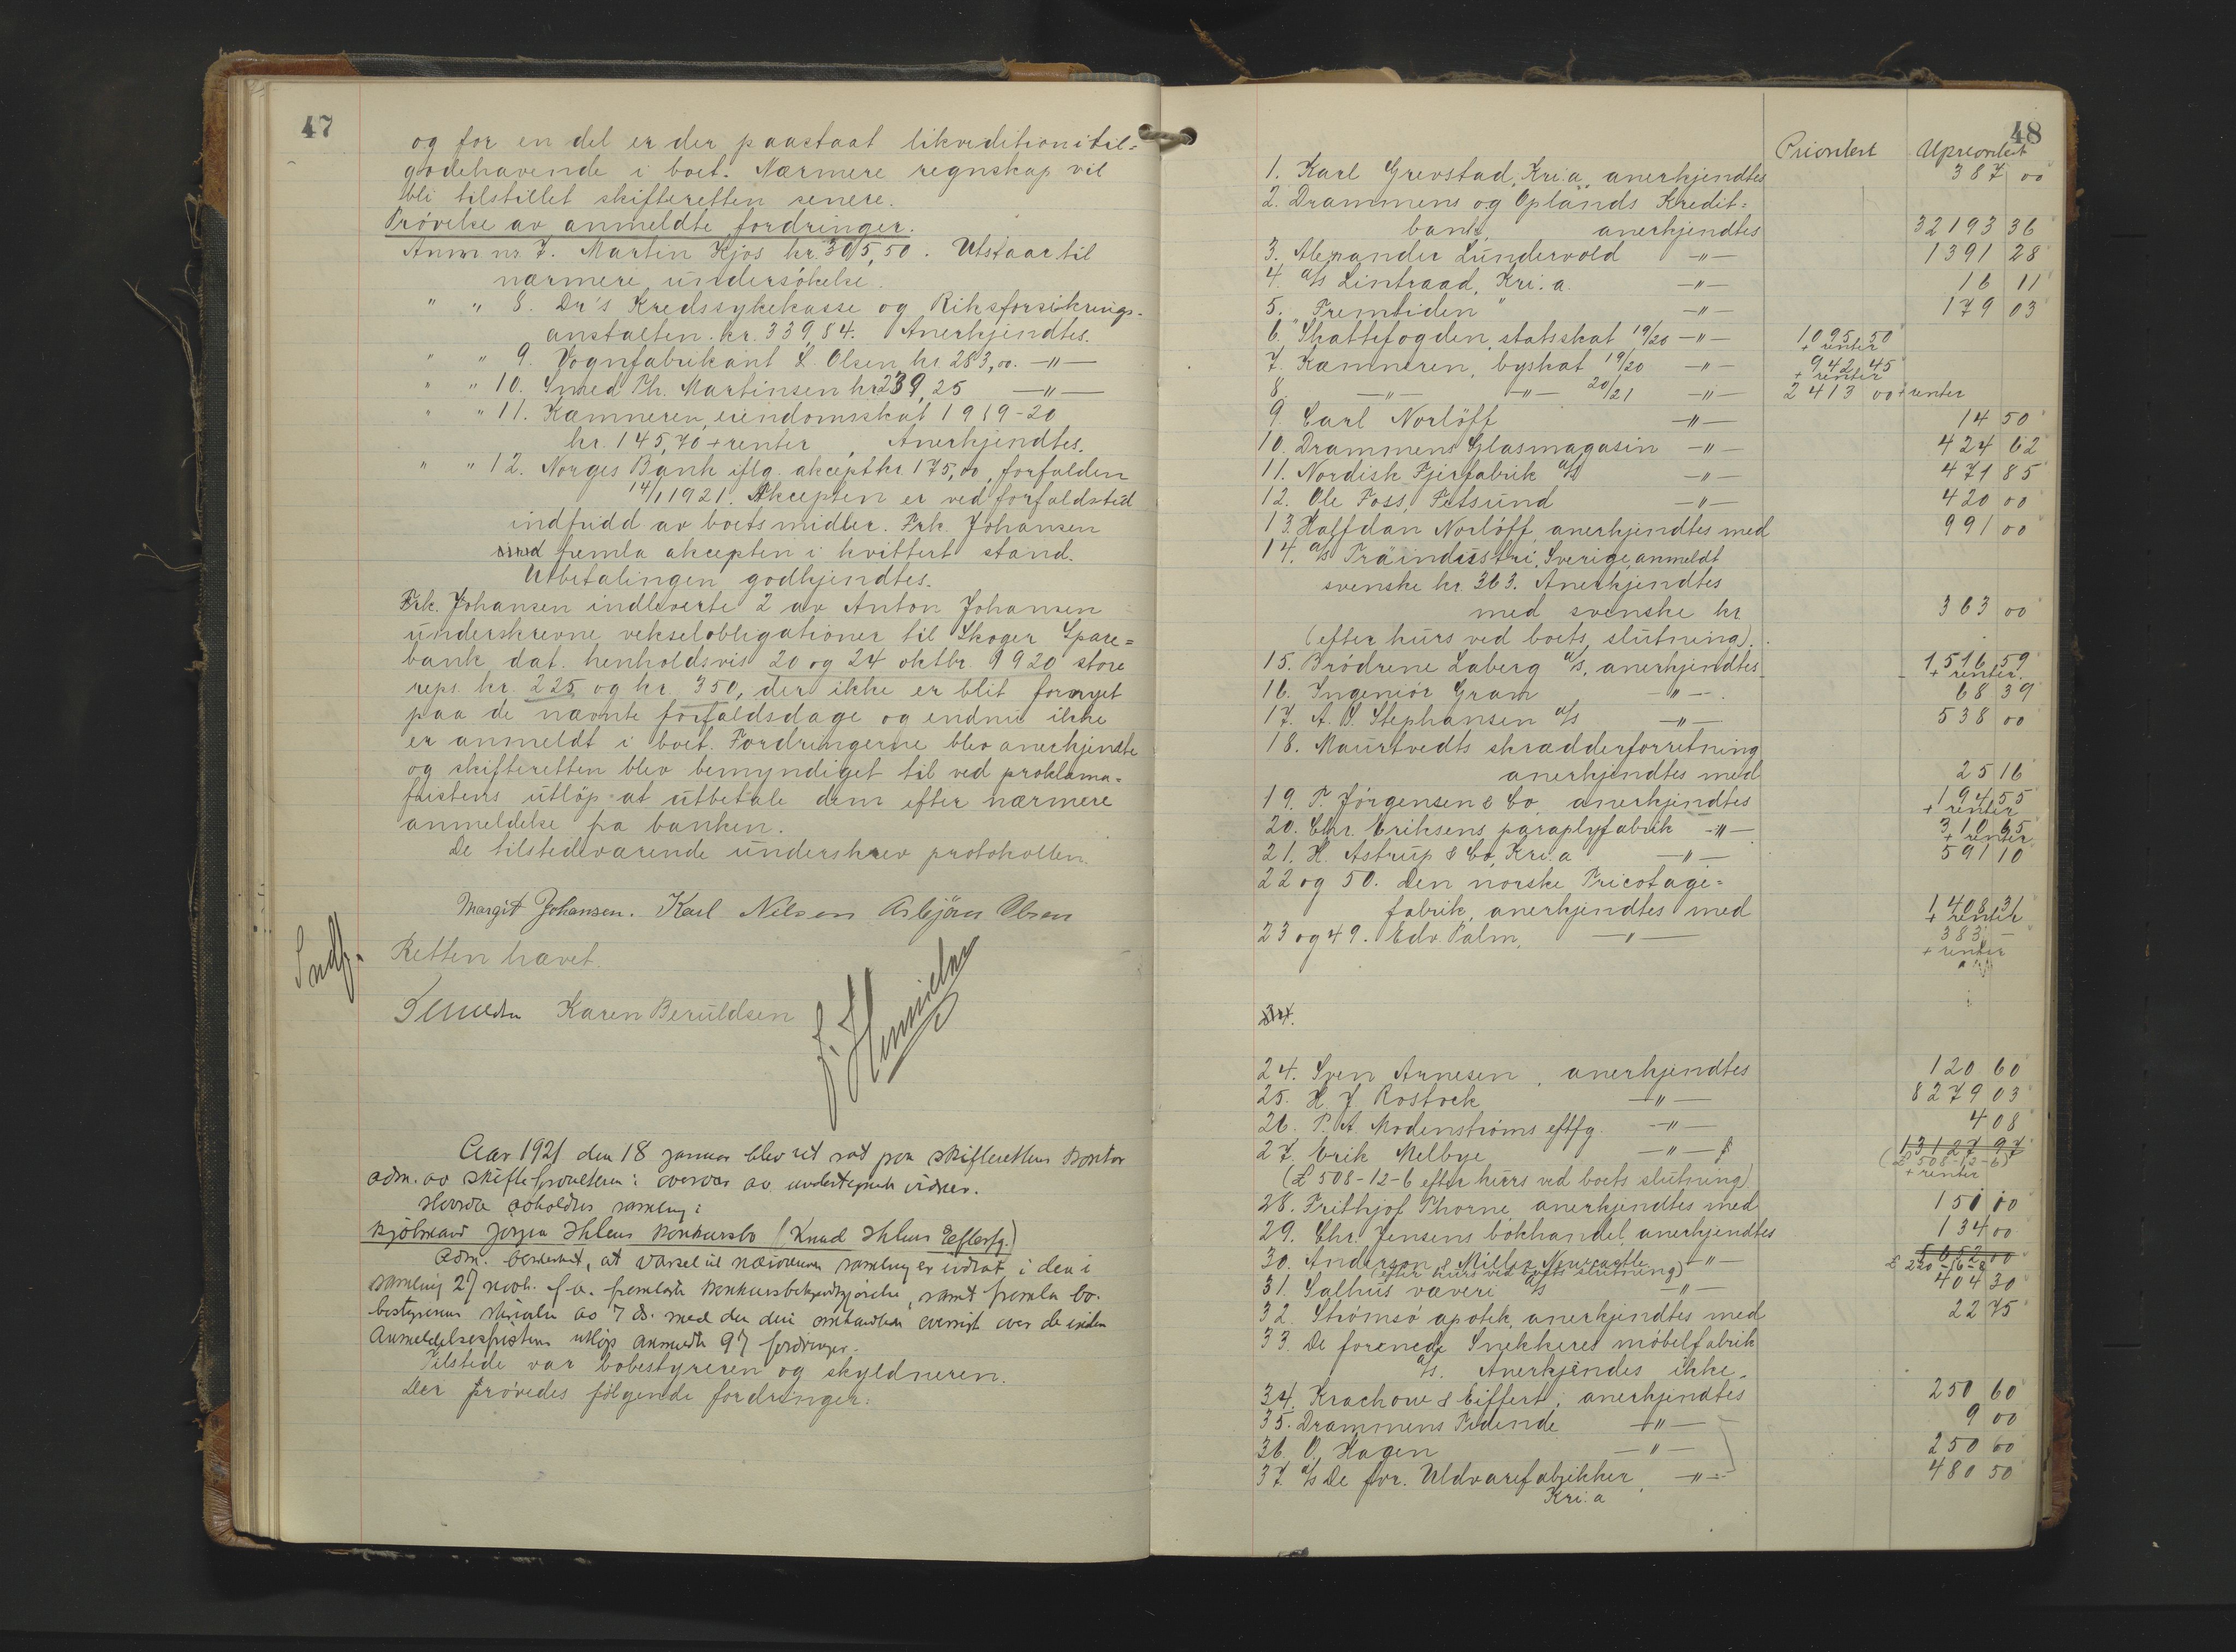 47
og for en del er der paastaat likvidition i til=
godehavende i boet. Nærmere regnskap vil
bli tilstillet skifteretten senere.
Prövelse av anmeldte fordringer.
Anm nr. 7. Martin Kjos kr. 305,50. Utstaar til
nærmere undersökelse.
" " 8. Dr's Kredssykekasse og Riksforsikrings-
anstalten kr. 339,84. Anerkjendtes.
" " 9. Vognfabrikant L. Olsen kr. 283,00. —"—
" " 10. Smed Th. Martinsen kr 239,25 —"—
" " 11. Kæmneren, eiendomsskat 1919-20
kr. 145,70 + renter, Anerkjendtes.
" " 12. Norges Bank iflg. akcept kr 175,00, forfalden
14/1 1921. Akcepten er ved forfaldstid
indfridd av boets midler. Frk. Johansen
fremla akcepten i kvittert stand.
Utbetalingen godkjendtes.
Frk. Johansen indleverte 2 av Anton Johansen
underskrevne vekselobligationer til Skoger Spare=
bank dat. henholdsvis 20 og 24 oktbr. 1920 store
reps. kr. 225 og kr. 350, der ikke er blit fornyet
paa de nævnte forfaldsdage og endnu ikke
er anmeldt i boet. Fordringerne blev anerkjendte
og skifteretten blev bemyndiget til ved proklama=
fristens utlöp at utbetale dem efter nærmere
anmeldelse fra banken.
De tilstedeværende underskrev protokollen.
Margit Johansen. Karl Nilsen Asbjörn Olsen
Retten hævet.
Karen Beruldsen
Aar 1921 den 18 januar blev ret sat paa skifterettens kontor
adm. av skifteforvalteren i overvær av undertegnede vidner.
Hvorda avholdtes samling i
kjöbmand Jörgen Ihlens konkursbo (Knud Ihlens Efterfg.)
Adm. bemerket, at varsel til nærværende samling er indtat i den i
samling 27 novb. f.a. fremlagte konkursbekjendtgjörelse, samt fremla bo-
bestyrerens skrivelse av 7 ds. med den deri omhandlede oversigt over de inden
Anmeldelsesfristens utlöp anmeldte 97 fordringer.
Tilstede var bobestyreren og skyldneren.
Der prövedes fölgende fordringer:
48
Prioritert Uprioritert
1. Karl Grevstad, Kri.a, anerkjendtes 387 00
2. Drammens og Oplands Kredit=
bank, anerkjendtes 32193 36
3. Alexander Lundervold —"— 1391 28
4. a/s Lintraad, Kri.a. —"— 16 11
5. " Fremtiden " —"— 179 03
6. Skattefogden, statsskat 19/20 —"— 1095 50
+ renter
7. Kæmneren, byskat 19/20 —"— 942 45
+ renter
8. —"— —"— 20/21 —"— 2413 00 + renter
9. Carl Norlöff —"— 14 50
10. Drammens Glasmagasin —"— 424 62
11. Nordisk Fjerfabrik a/s —"— 471 85
12. Ole Foss, Fetsund —"— 420 00
13. Halfdan Norlöff, anerkjendtes med 991 00
14. a/s Träindustri, Sverige, anmeldt
svenske kr. 363. Anerkjendtes
med svenske kr 363 00
(efter kurs ved boets slutning).
15. Brödrene Laberg a/s, anerkjendtes 1516 59
+ renter.
16. Ingeniör Gram —"— 68 39
17. A. S. Stephansen a/s —"— 538 00
18. Maurtvedts skrædderforretning
anerkjendtes med 25 16
19. P. Jörgensen & Co anerkjendtes 194 55
+ renter
20. Chr. Eriksens paraplyfabrik —"— 310 65
+ renter
21. H. Astrup & Co, Kri.a —"— 591 10
22 og 50. Den norske Tricotage=
fabrik, anerkjendtes med 1408 31
+ renter
23 og 49. Edv. Palm, —"— 383 —
+ renter
24. Sven Arnesen, anerkjendtes 120 60
25. H. J. Rostock —"— 8279 03
26. P. A. Modenströms eftfg. —"— 408
27. Erik Melbye —"— 13127 97
(£ 508-12-6)
+ renter
(£ 508-12-6 efter kurs ved boets slutning)
28. Frithjof Thorne anerkjendtes med 150 00
29. Chr. Jensens bokhandel, anerkjendtes 134 00
30. Anderson & Miller Newcastle —"— 5652 00
(efter kurs ved boets slutning) £ 220-16-8
31. Salhus væveri a/s —"— 404 30
32. Strömsö apotek, anerkjendtes med 22 75
33. De forenede Snekkeres möbelfabrik
a/s. Anerkjendes ikke.
34. Krachow & Eiffert, anerkjendtes 250 60
35. Drammens Tidende —"— 9 00
36. O. Hagen —"— 250 60
37. a/s De for. Uldvarefabrikker, —"— 480 50
Kri.a